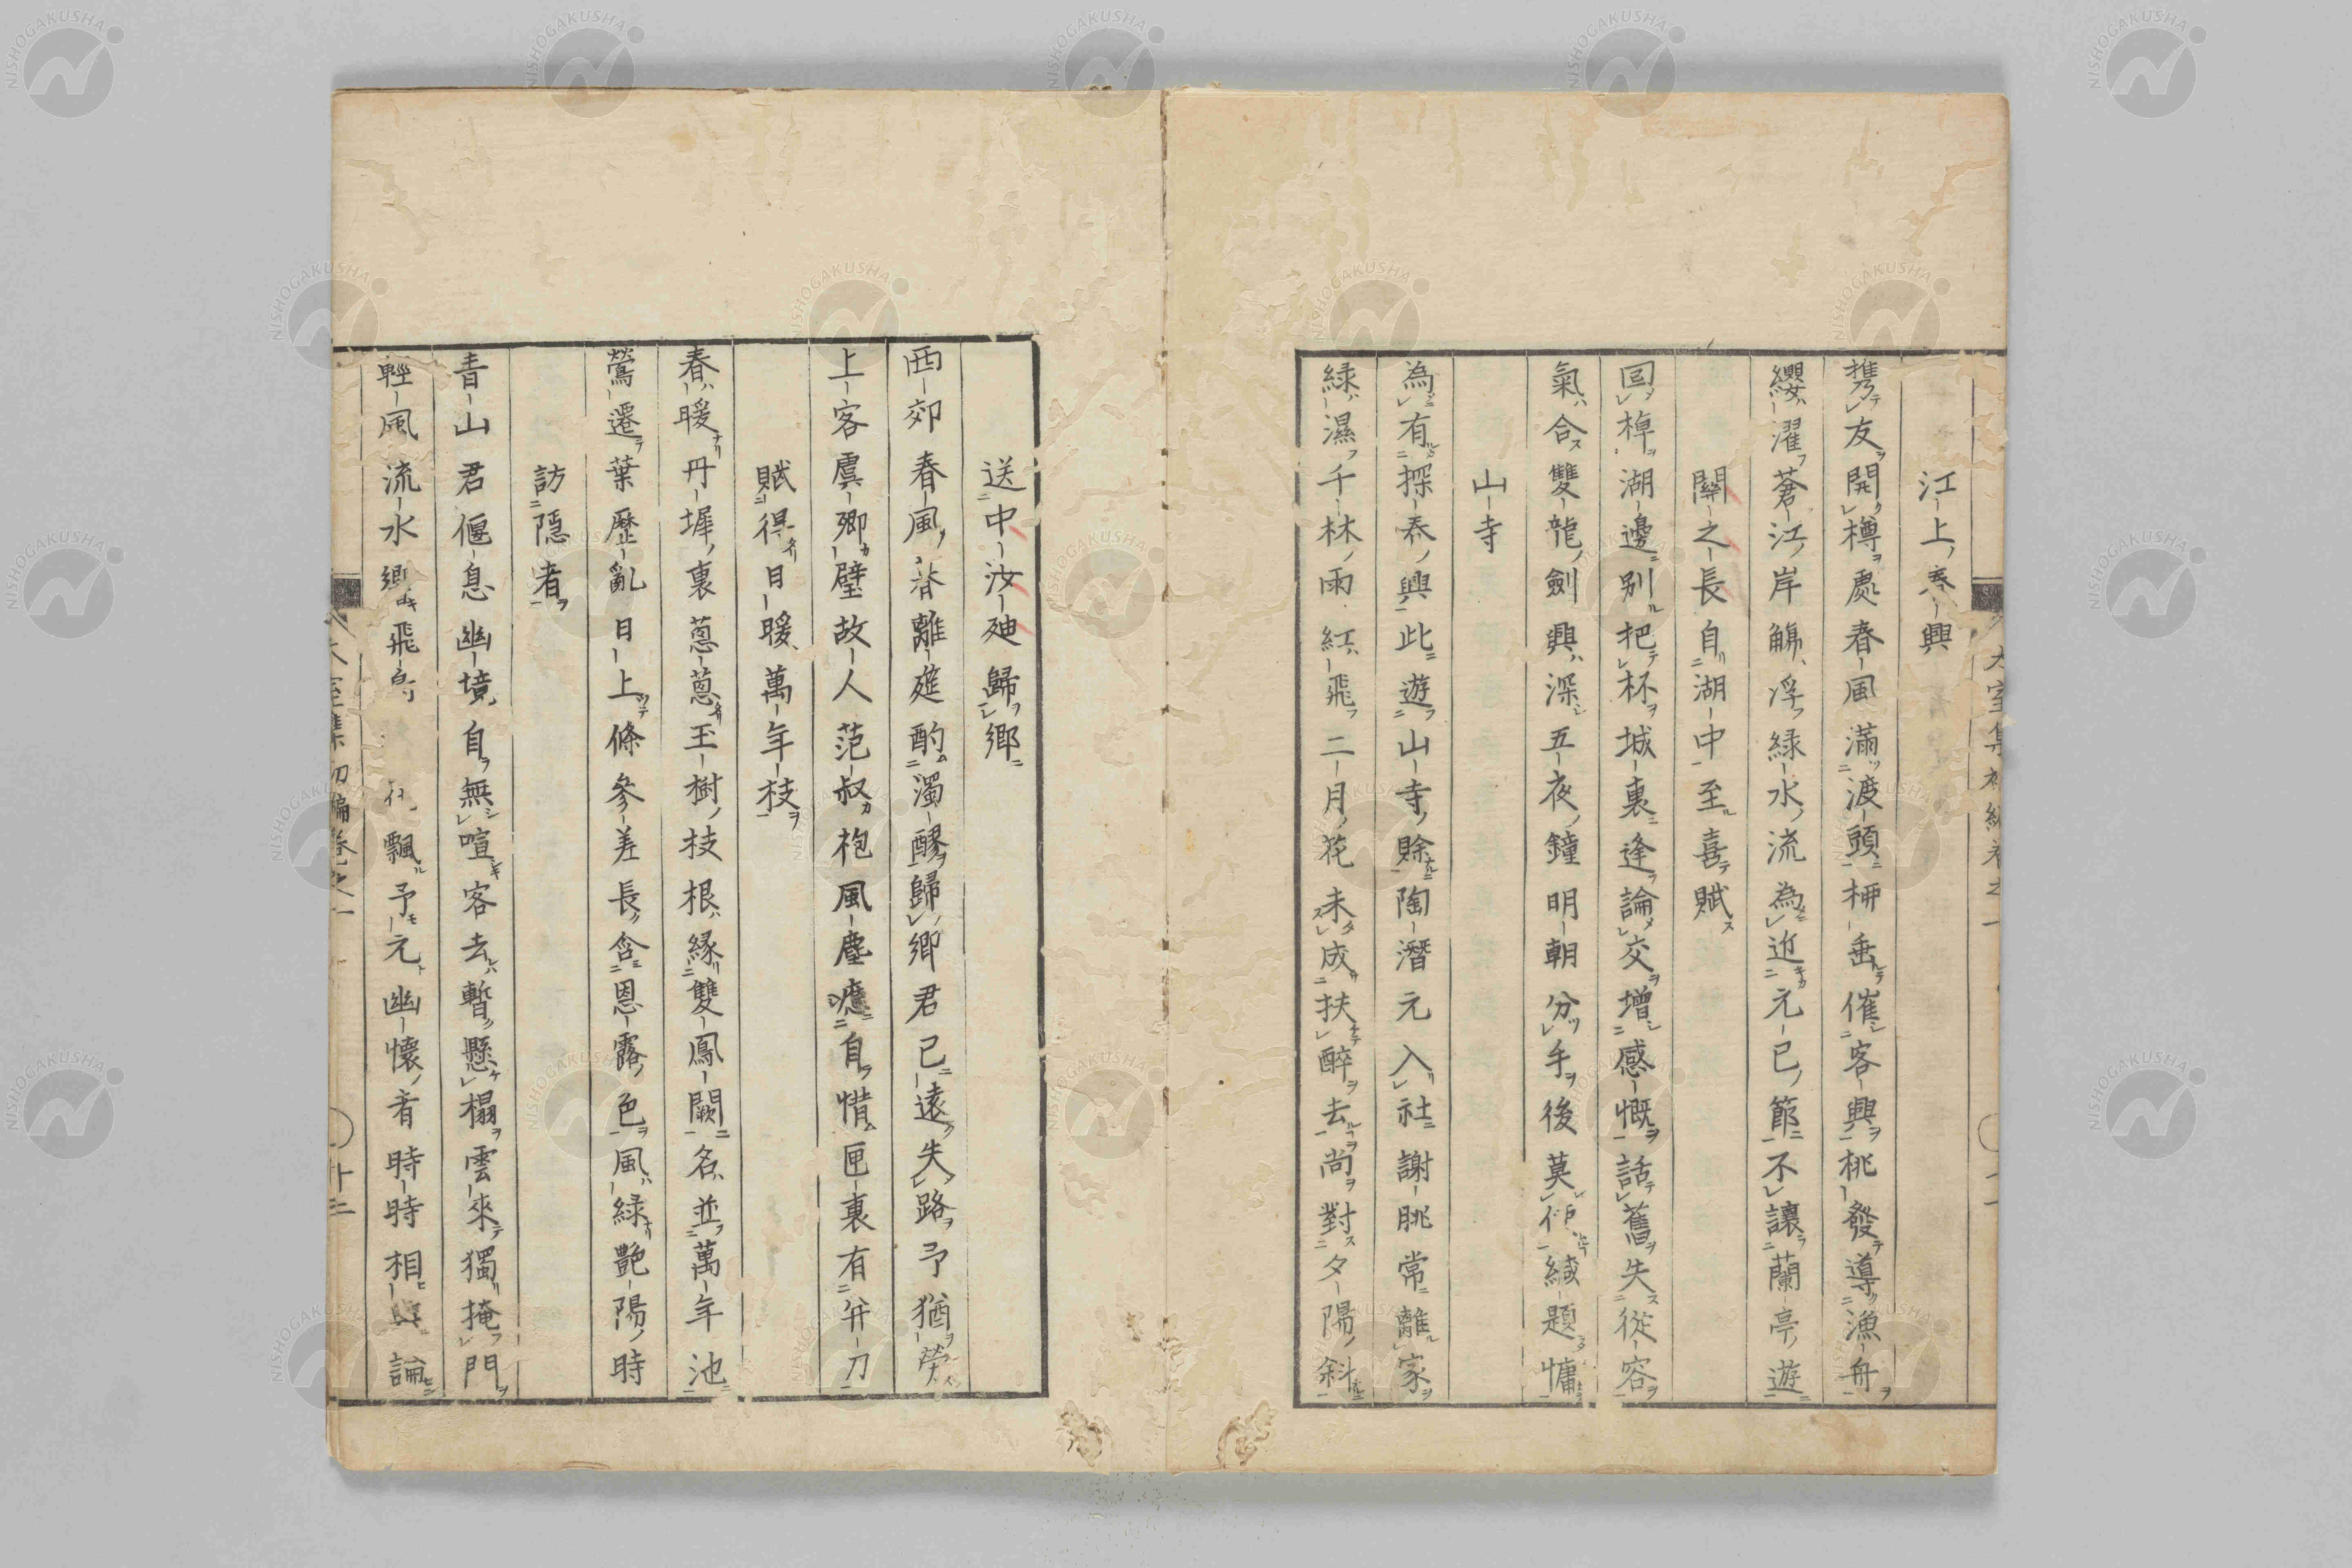 江上春興
携友開樽處春風滿渡頭柳垂催客興桃發導漁舟
纓濯蒼江岸觴浮緑水流為近元巳節不讓蘭亭遊
關之長自湖中至喜賦
回棹湖邊別把杯城裏逢論交增感慨話舊失從容
氣合雙龍劍興深五夜鐘明朝分手後莫使緘題慵
山寺
為有探春興此遊山寺賒陶潛元入社謝朓常離家
緑濕千林雨紅飛二月花未成扶醉去尚對夕陽斜
送中汝廸歸郷
西郊春風春離筵酌濁醪歸郷君已遠失路予猶勞
上客虞卿璧故人范叔袍風塵應自惜匣裏有幷刀
賦得日暖萬年枝
春暖丹墀裏蔥蔥玉樹枝根緣雙鳳闕名並萬年池
鶯遷葉歷亂日上條參差長含恩露色風緑艷陽時
訪隱者
青山君偃息幽境自無喧客去暫懸榻雲來獨掩門
輕風流水飛飄予元幽懷音時時相與論
大室集初編卷之一
大室集初編卷之一 廿三
NISHOGAKUSHA